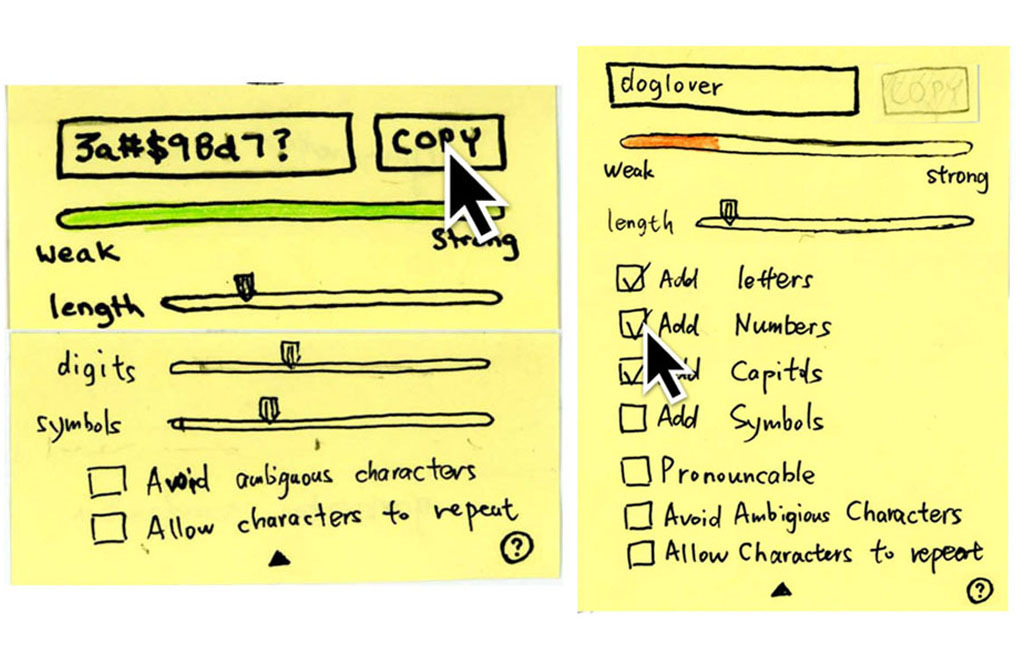 3a#$98d7? COPY
weak strong
length
digits
symbols
Avoid ambiguous characters
Allow characters to repeat
?
doglover COPY
weak strong
length
Add letters
Add Numbers
Add Capitals
Add Symbols
Pronouncable
Avoid Ambigious Characters
Allow Characters to repeat
?